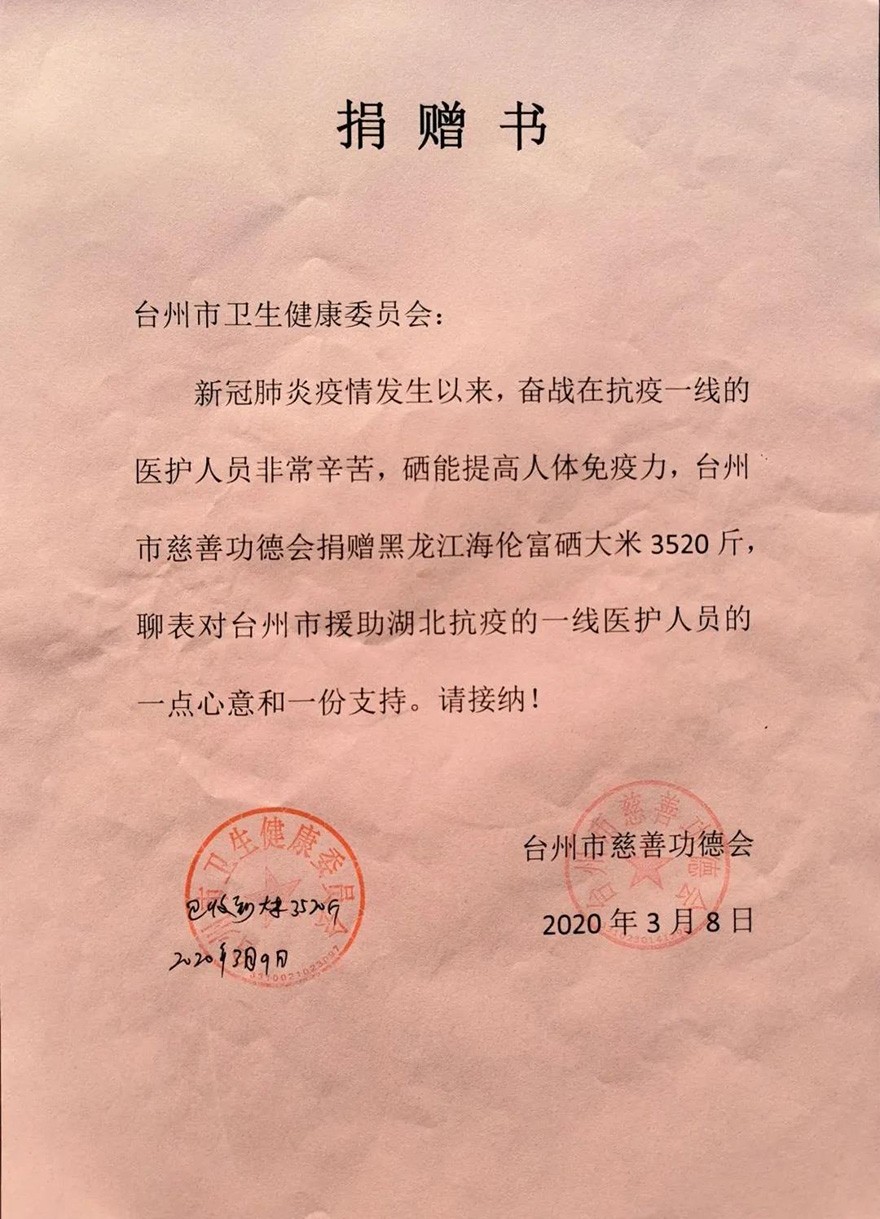 捐赠书
台州市卫生健康委员会：
新冠肺炎疫情发生以来，奋战在抗疫一线的
医护人员非常辛苦，硒能提高人体免疫力，台州
市慈善功德会捐赠黑龙江海伦富硒大米 3520 斤，
聊表对台州市援助湖北抗疫的一线医护人员的
一点心意和一份支持。请接纳！
台州市慈善功德会
2020 年 3 月 8 日
州市卫生健康委员会
已收到大米3520斤
2020年3月9日
3310021023097
台州市慈善功德会